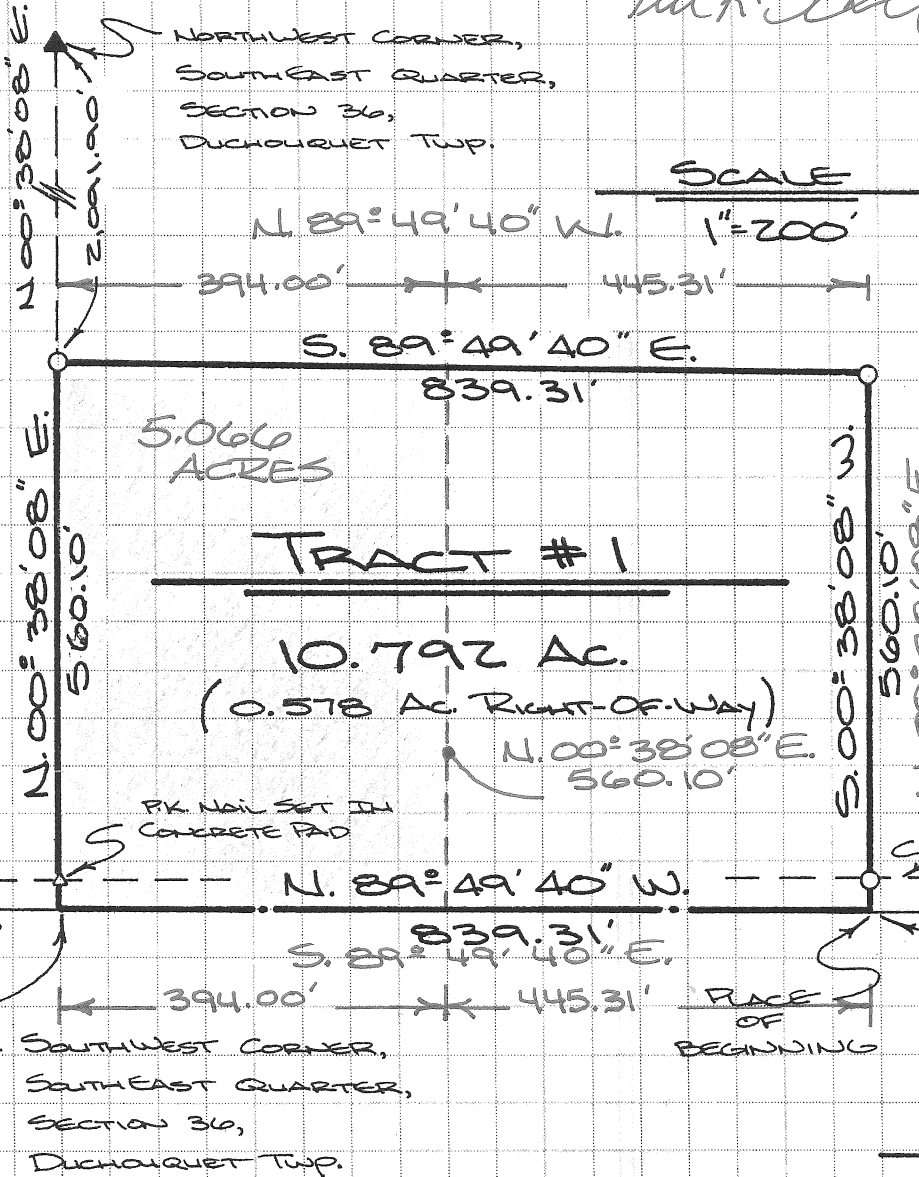 N 00° 38' 08" E.
2,091.90'
NORTHWEST CORNER,
SOUTHEAST QUARTER,
SECTION 36,
DUCHOUQUET TWP.
SCALE
1"=200'
N. 89° 49' 40" W.
394.00'
445.31'
S. 89° 49' 40" E.
839.31'
5.066
ACRES
N. 00° 38' 08" E.
560.10'
TRACT # 1
10.792 AC.
(0.578 AC. RIGHT-OF-WAY)
N. 00° 38' 08" E.
560.10'
S. 00° 38' 08" W.
560.10'
P.K. NAIL SET IN
CONCRETE PAD
N. 89° 49' 40" W.
839.31'
S. 89° 49' 40" E.
394.00'
445.31'
PLACE
OF
BEGINNING
SOUTHWEST CORNER,
SOUTHEAST QUARTER,
SECTION 36,
DUCHOUQUET TWP.